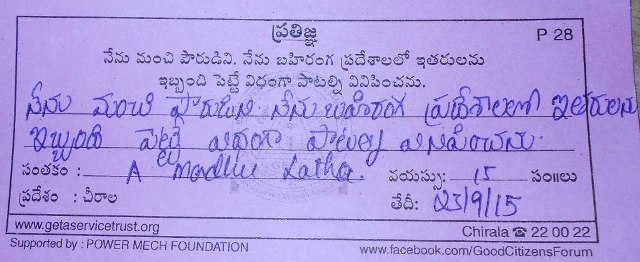 ప్రతిజ్ఞ P 28
నేను మంచి పౌరుడిని. నేను బహిరంగ ప్రదేశాలలో ఇతరులను
ఇబ్బంది పెట్టే విధంగా పాటల్ని వినిపించను.
నేను మంచి పౌరుడిని నేను బహిరంగ ప్రదేశాలలో ఇతరులను
ఇబ్బంది పెట్టే విధంగా పాటలు వినిపించను.
సంతకం : A Madhu Latha. వయస్సు: 15 సం॥లు
ప్రదేశం : చీరాల తేదీ: 23/9/15
www.getaservicetrust.org Chirala ☎ 22 00 22
Supported by : POWER MECH FOUNDATION www.facebook.com/GoodCitizensForum